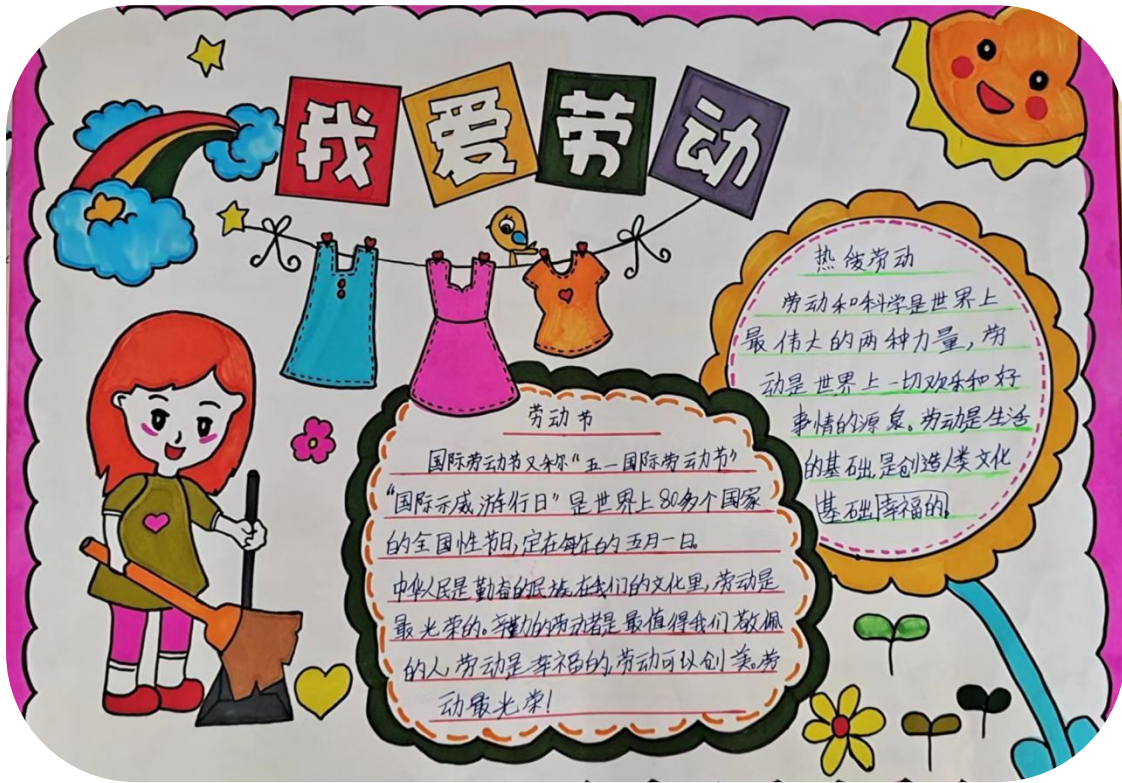 我爱劳动
劳动节
国际劳动节又称“五一国际劳动节”
“国际示威游行日”是世界上80多个国家
的全国性节日,定在每年的五月一日。
中华人民是勤奋的民族,在我们的文化里,劳动是
最光荣的。辛勤的劳动者是最值得我们敬佩
的人,劳动是幸福的,劳动可以创美。劳
动最光荣!
热爱劳动
劳动和科学是世界上
最伟大的两种力量,劳
动是世界上一切欢乐和好
事情的源泉。劳动是生活
的基础,是创造人类文化
基础幸福的。